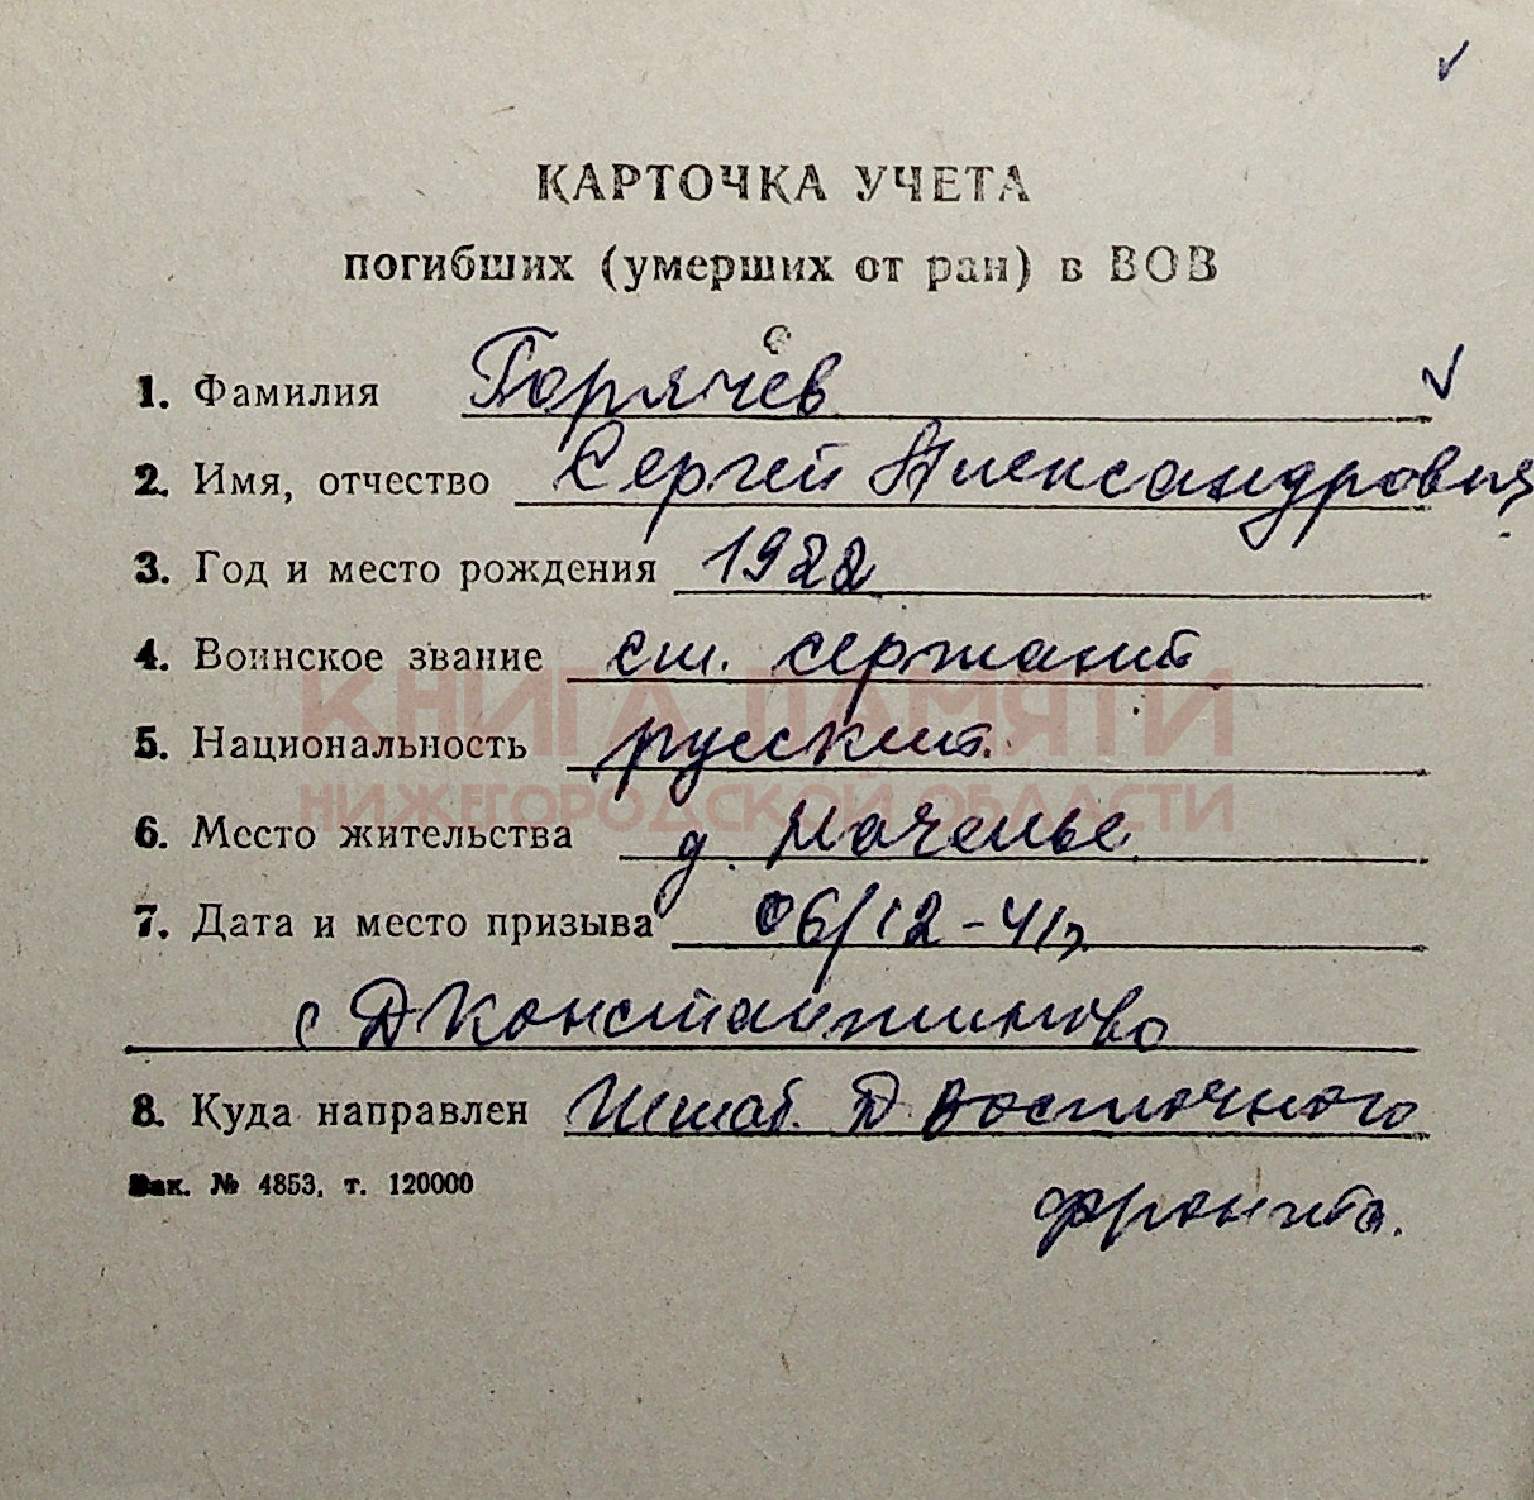 КАРТОЧКА УЧЕТА
погибших (умерших от ран) в ВОВ
1. Фамилия Горячев
2. Имя, отчество Сергей Александрович
3. Год и место рождения 1922
4. Воинское звание ст. сержант
5. Национальность русский.
КНИГА ПАМЯТИ
НИЖЕГОРОДСКОЙ ОБЛАСТИ
6. Место жительства д.
7. Дата и место призыва 06/12-41г
с Д Константиново
8. Куда направлен Штаб. Д Восточного
фронта.
Зак. № 4853, т. 120000